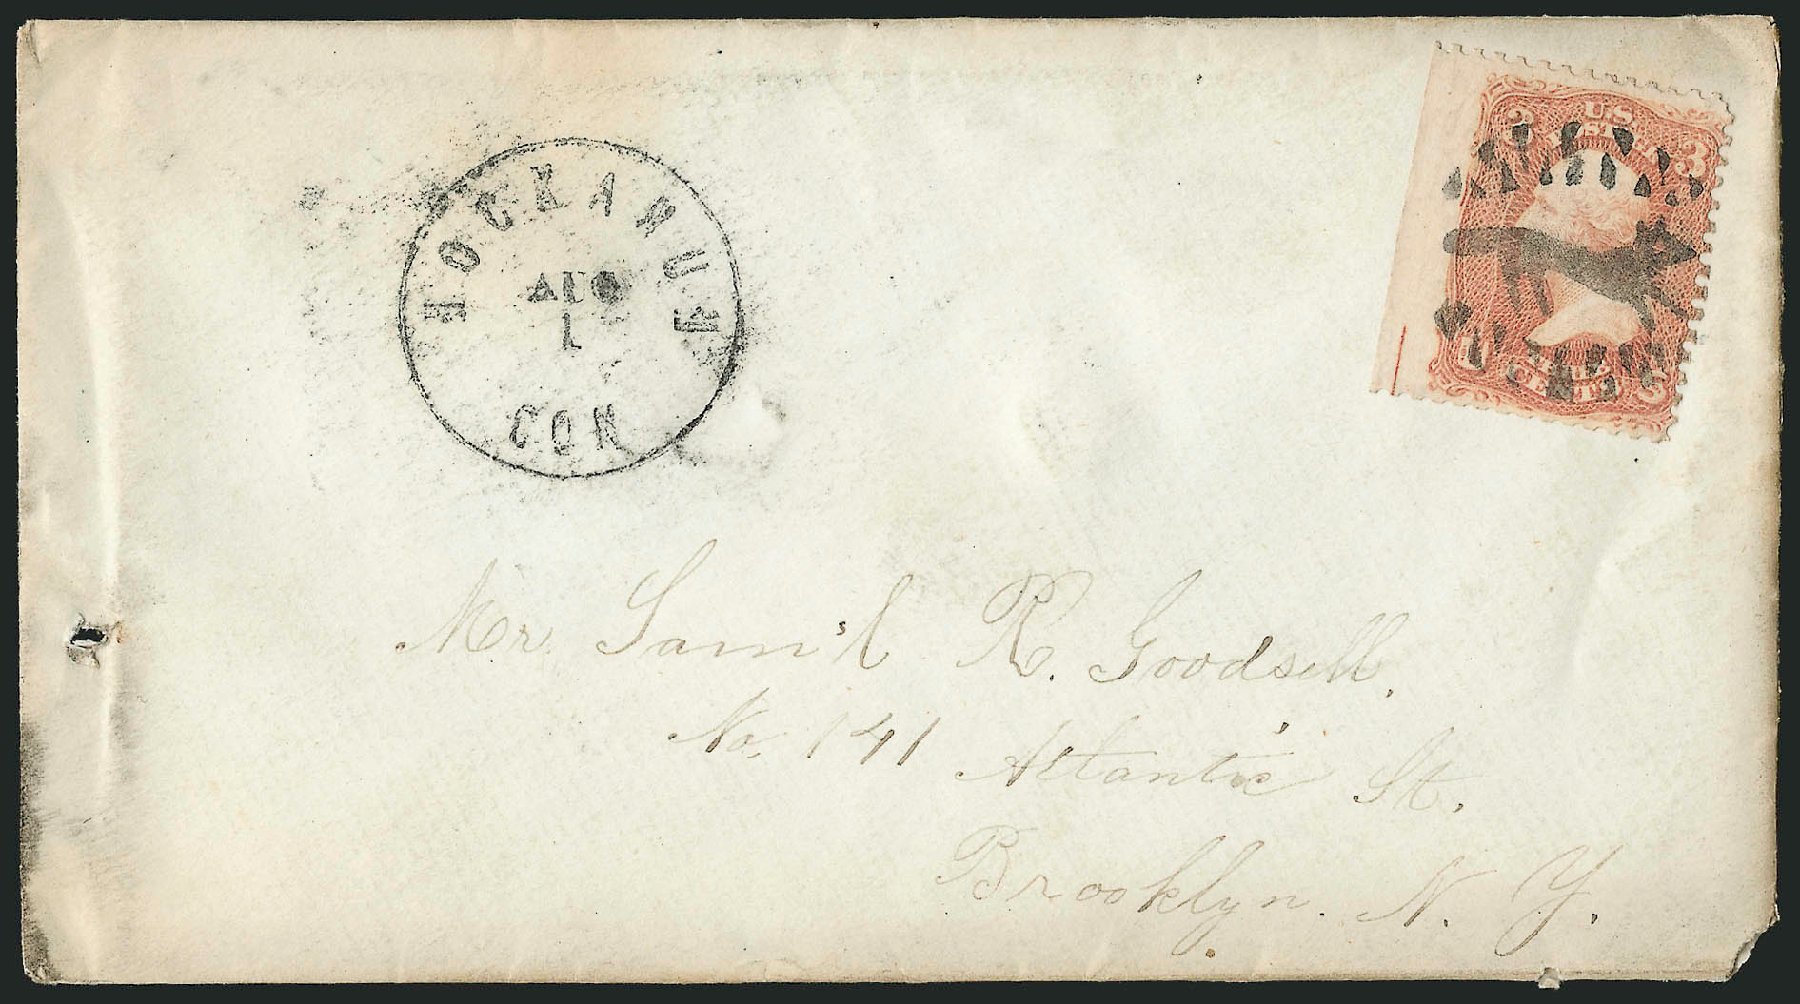 HOCKANUM
AUG
1
CON
3 U.S. 3
POSTAGE
THREE
CENTS
Mr. Sam'l R. Goodsell.
No. 141 Atlantic St.
Brooklyn. N. Y.